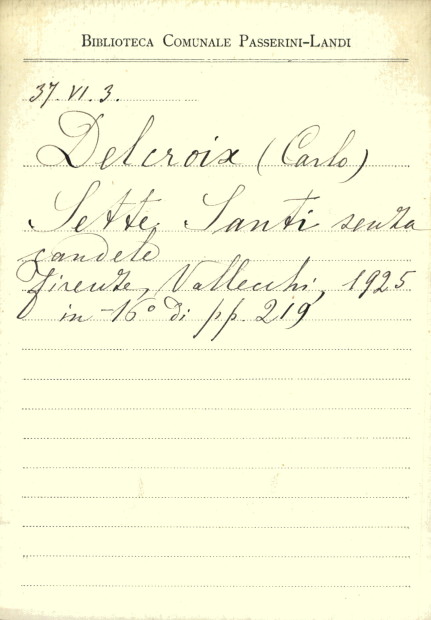 Biblioteca Comunale Passerini-Landi
37. VI. 3.
Delcroix (Carlo)
Sette Santi senza
candele
Firenze, Vallecchi, 1925
in-16° di pp. 219